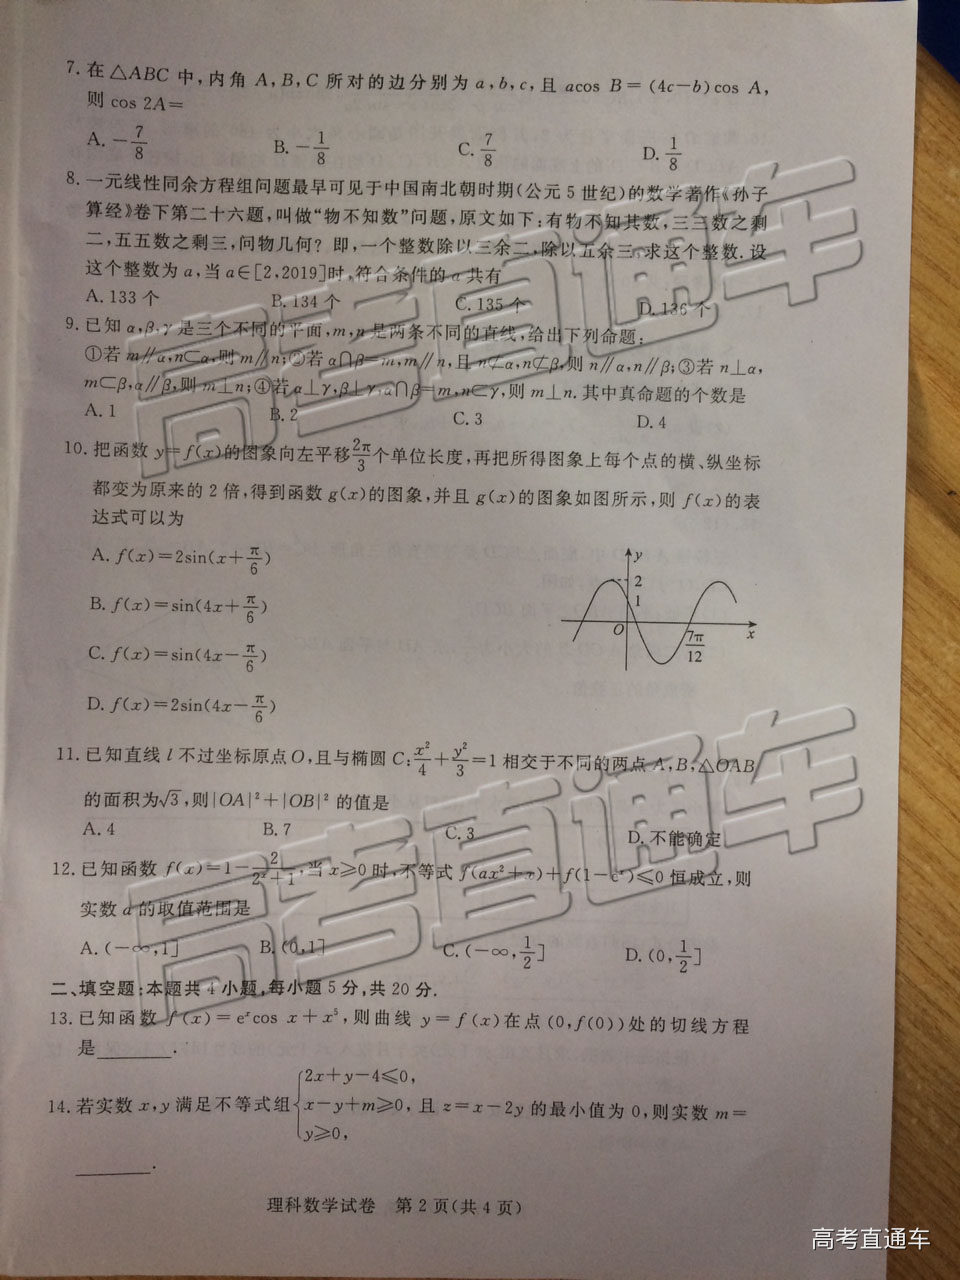 7. 在 △ABC 中,内角 A,B,C 所对的边分别为 a,b,c,且 acos B=(4c-b)cos A,
则 cos 2A=
A. -7/8 B. -1/8 C. 7/8 D. 1/8
8. 一元线性同余方程组问题最早可见于中国南北朝时期(公元 5 世纪)的数学著作《孙子
算经》卷下第二十六题,叫做“物不知数”问题,原文如下:有物不知其数,三三数之剩
二,五五数之剩三,问物几何? 即,一个整数除以三余二,除以五余三,求这个整数. 设
这个整数为 a,当 a∈[2,2019]时,符合条件的 a 共有
A. 133 个 B. 134 个 C. 135 个 D. 136 个
9. 已知 α,β,γ 是三个不同的平面,m,n 是两条不同的直线,给出下列命题:
①若 m∥α,n⊂α,则 m∥n;②若 α∩β=m,m∥n,且 n⊄α,n⊄β,则 n∥α,n∥β;③若 n⊥α,
m⊂β,α∥β,则 m⊥n;④若 α⊥γ,β⊥γ,α∩β=m,n⊂γ,则 m⊥n. 其中真命题的个数是
A. 1 B. 2 C. 3 D. 4
10. 把函数 y=f(x)的图象向左平移2π/3个单位长度,再把所得图象上每个点的横、纵坐标
都变为原来的 2 倍,得到函数 g(x)的图象,并且 g(x)的图象如图所示,则 f(x)的表
达式可以为
A. f(x)=2sin(x+π/6)
B. f(x)=sin(4x+π/6)
C. f(x)=sin(4x-π/6)
D. f(x)=2sin(4x-π/6)
y
2
1
O
7π/12
x
11. 已知直线 l 不过坐标原点 O,且与椭圆 C:x²/4+y²/3=1 相交于不同的两点 A,B,△OAB
的面积为√3,则|OA|²+|OB|² 的值是
A. 4 B. 7 C. 3 D. 不能确定
12. 已知函数 f(x)=1-2/(2ˣ+1),当 x≥0 时,不等式 f(ax²+x)+f(1-eˣ)≤0 恒成立,则
实数 a 的取值范围是
A. (-∞,1] B. (0,1] C. (-∞,1/2] D. (0,1/2]
二、填空题:本题共 4 小题,每小题 5 分,共 20 分.
13. 已知函数 f(x)=eˣcos x+x⁵,则曲线 y=f(x)在点(0,f(0))处的切线方程
是________.
14. 若实数 x,y 满足不等式组{2x+y-4≤0, x-y+m≥0, y≥0, 且 z=x-2y 的最小值为 0,则实数 m=
________.
理科数学试卷 第 2 页(共 4 页)
高考直通车
高考直通车
高考直通车